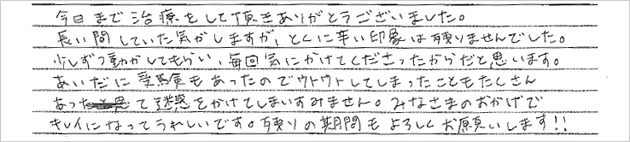 今日まで治療をして頂きありがとうございました。
長い間していた気がしますが、とくに辛い印象は残りませんでした。
少しずつ動かしてもらい、毎回気にかけてくださったからだと思います。
あいだに受験もあったのでウトウトしてしまったこともたくさん
あって迷惑をかけてしまいすみません。みなさまのおかげで
キレイになってうれしいです。残りの期間もよろしくお願いします!!